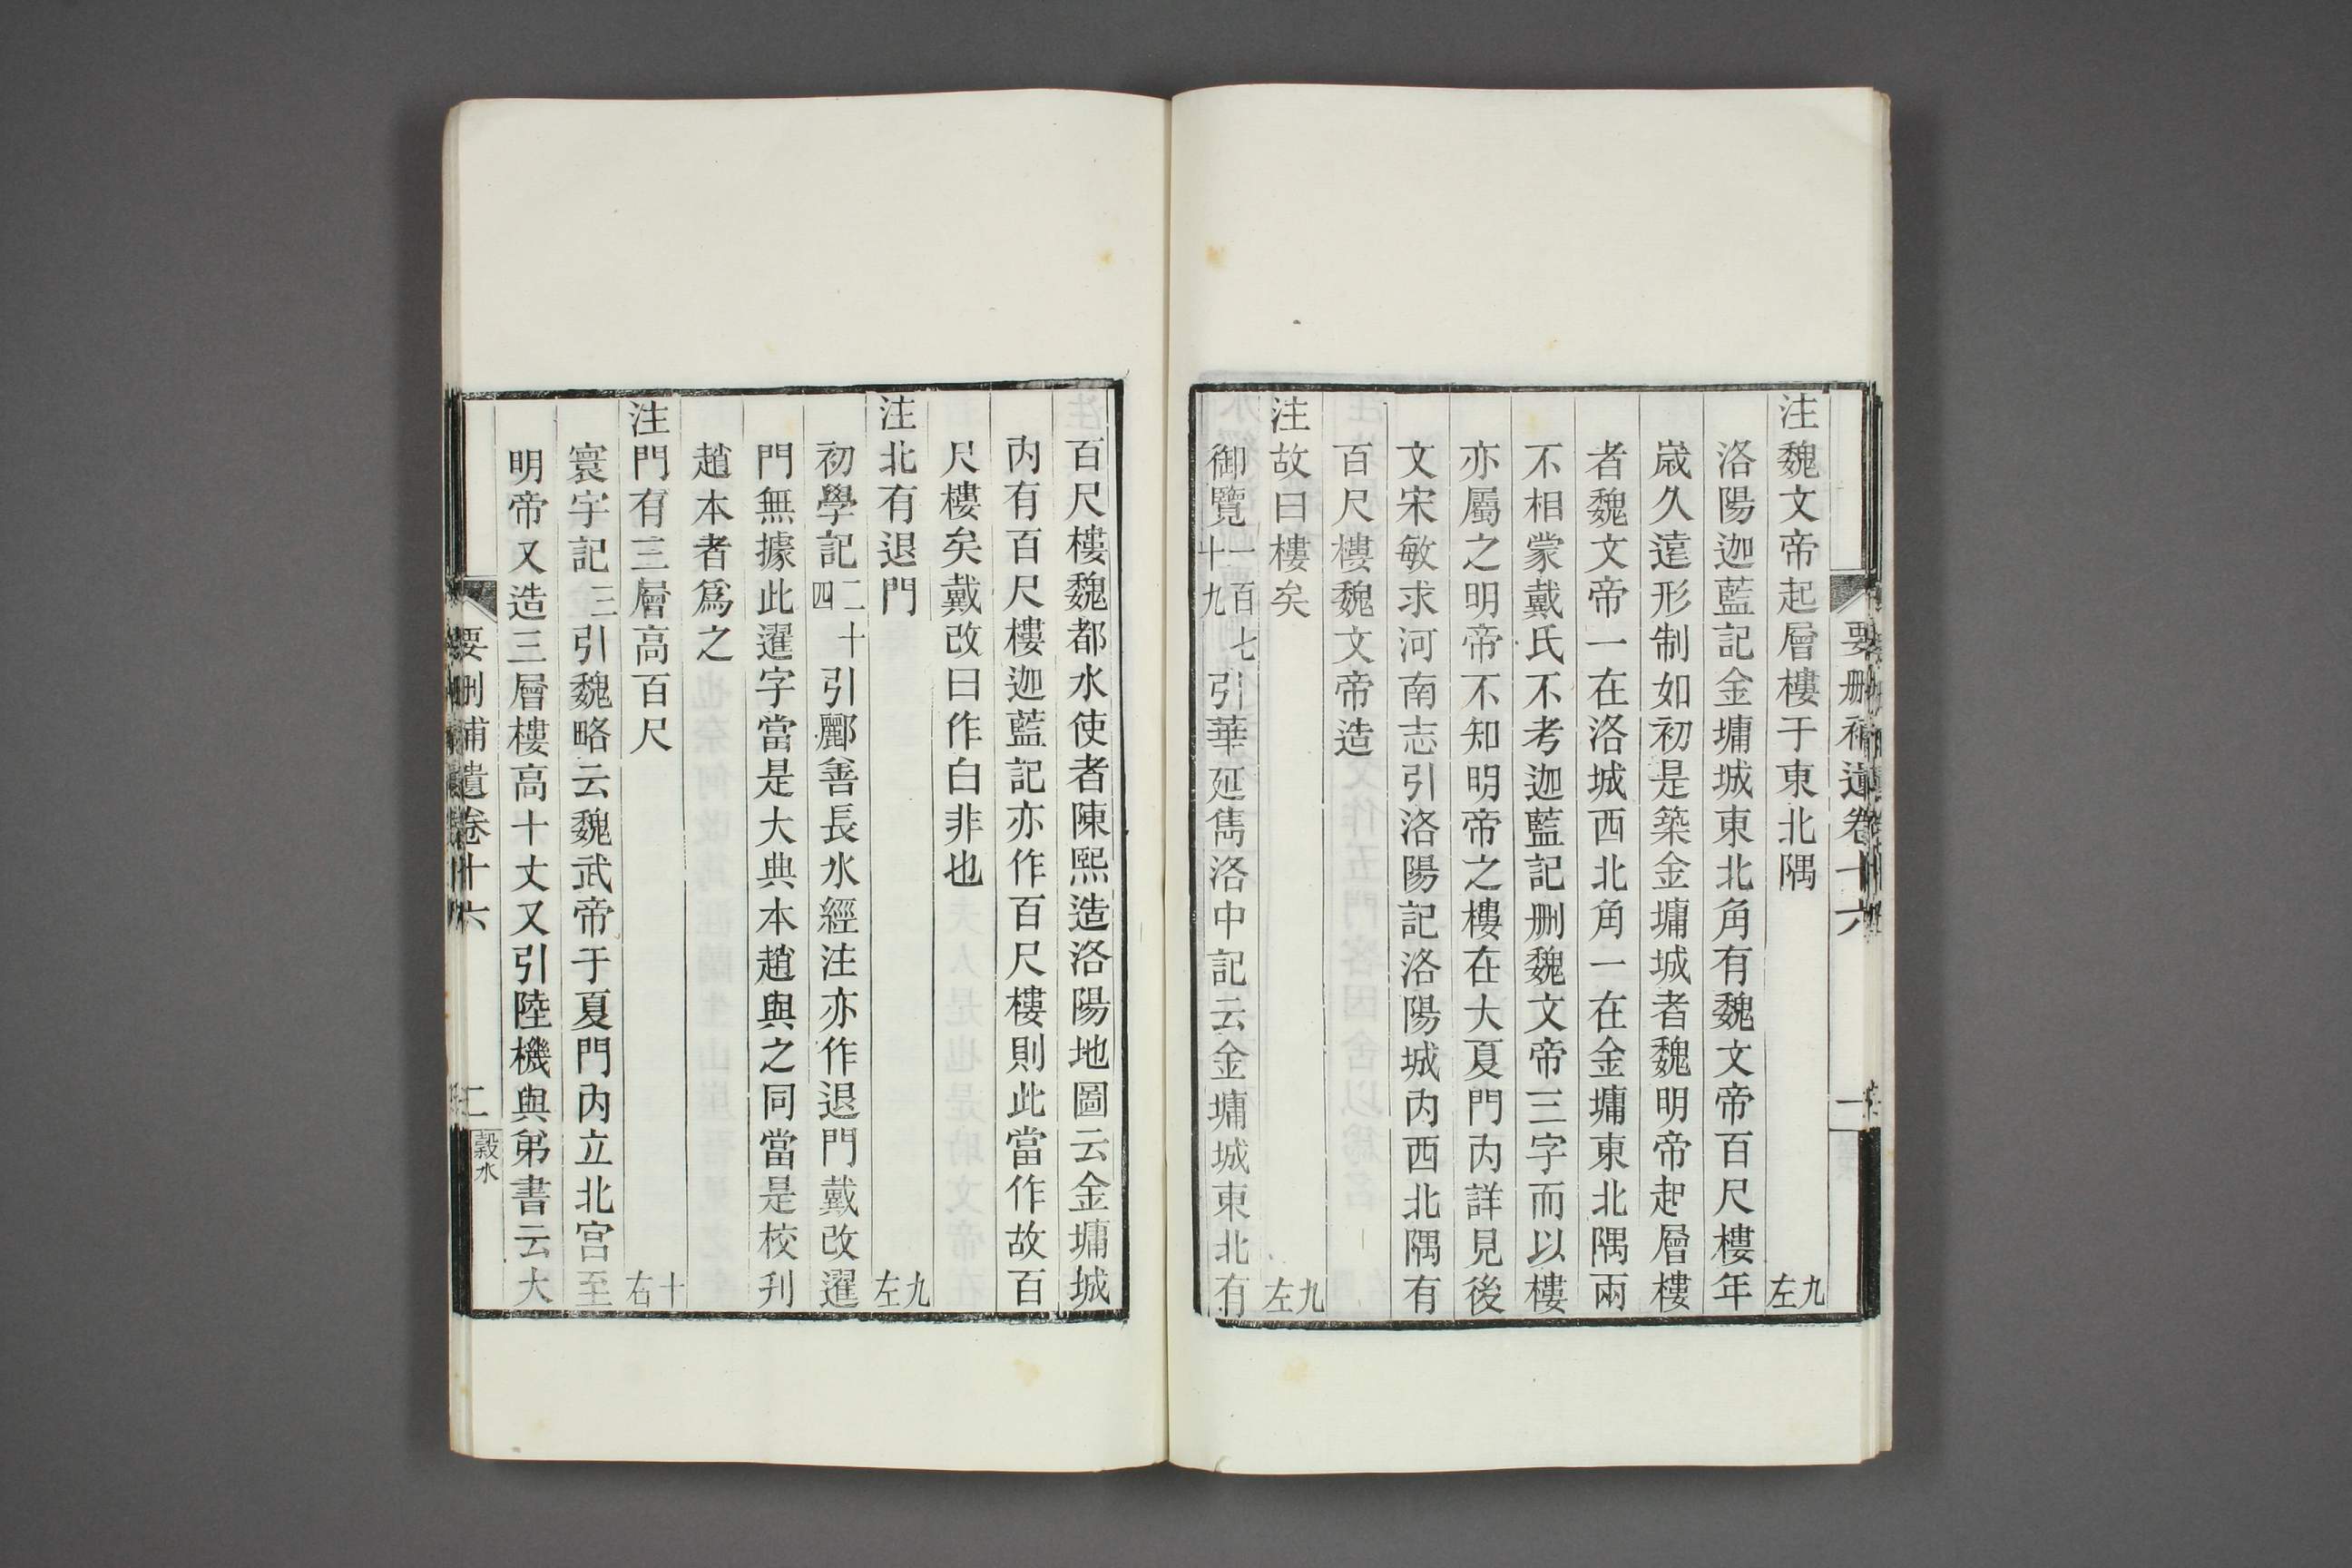 要刪補遺卷十六
一
注魏文帝起層樓于東北隅 九左
洛陽迦藍記金墉城東北角有魏文帝百尺樓年
歲久遠形制如初是築金墉城者魏明帝起層樓
者魏文帝一在洛城西北角一在金墉東北隅兩
不相蒙戴氏不考迦藍記刪魏文帝三字而以樓
亦屬之明帝不知明帝之樓在大夏門內詳見後
文宋敏求河南志引洛陽記洛陽城內西北隅有
百尺樓魏文帝造
注故曰樓矣 九左
御覽一百七十九引華延儁洛中記云金墉城東北有
百尺樓魏都水使者陳熙造洛陽地圖云金墉城
內有百尺樓迦藍記亦作百尺樓則此當作故百
尺樓矣戴改曰作白非也
注北有退門 九左
初學記二十四引酈善長水經注亦作退門戴改暹
門無據此暹字當是大典本趙與之同當是校刋
趙本者爲之
注門有三層高百尺 十右
寰宇記三引魏略云魏武帝于夏門內立北宮至
明帝又造三層樓高十丈又引陸機與弟書云大
要刪補遺卷十六
二
穀水